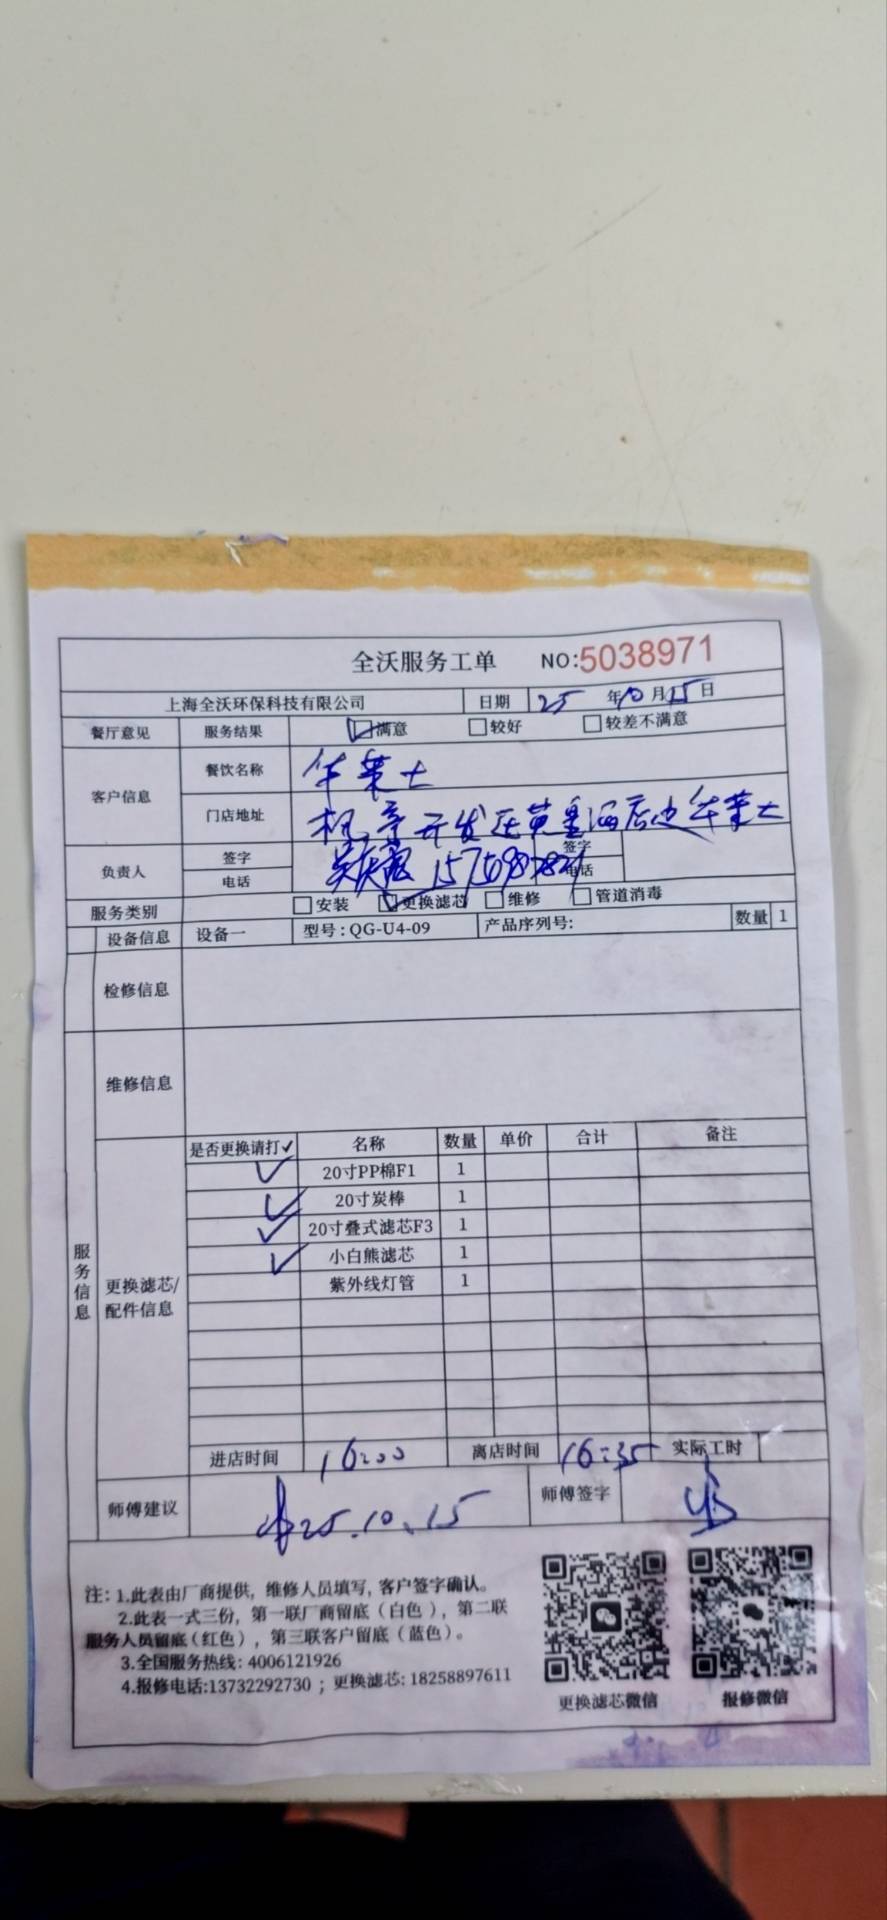 全沃服务工单 NO:5038971
上海全沃环保科技有限公司 日期 25 年10月15日
餐厅意见 服务结果 满意 较好 较差不满意
客户信息 餐饮名称 华莱士
门店地址 枫亭开发区英皇酒店边华莱士
负责人 签字 签字
电话 电话
服务类别 安装 更换滤芯 维修 管道消毒
设备信息 设备一 型号:QG-U4-09 产品序列号: 数量 1
检修信息
维修信息
服务信息
更换滤芯/配件信息
是否更换请打✓ 名称 数量 单价 合计 备注
✓ 20寸PP棉F1 1
✓ 20寸炭棒 1
✓ 20寸叠式滤芯F3 1
✓ 小白熊滤芯 1
紫外线灯管 1
进店时间 16:00 离店时间 16:35 实际工时
师傅建议 25.10.15 师傅签字
注: 1.此表由厂商提供, 维修人员填写, 客户签字确认。
2.此表一式三份, 第一联厂商留底(白色), 第二联
服务人员留底(红色), 第三联客户留底(蓝色)。
3.全国服务热线: 4006121926
4.报修电话:13732292730 ; 更换滤芯: 18258897611
更换滤芯微信 报修微信